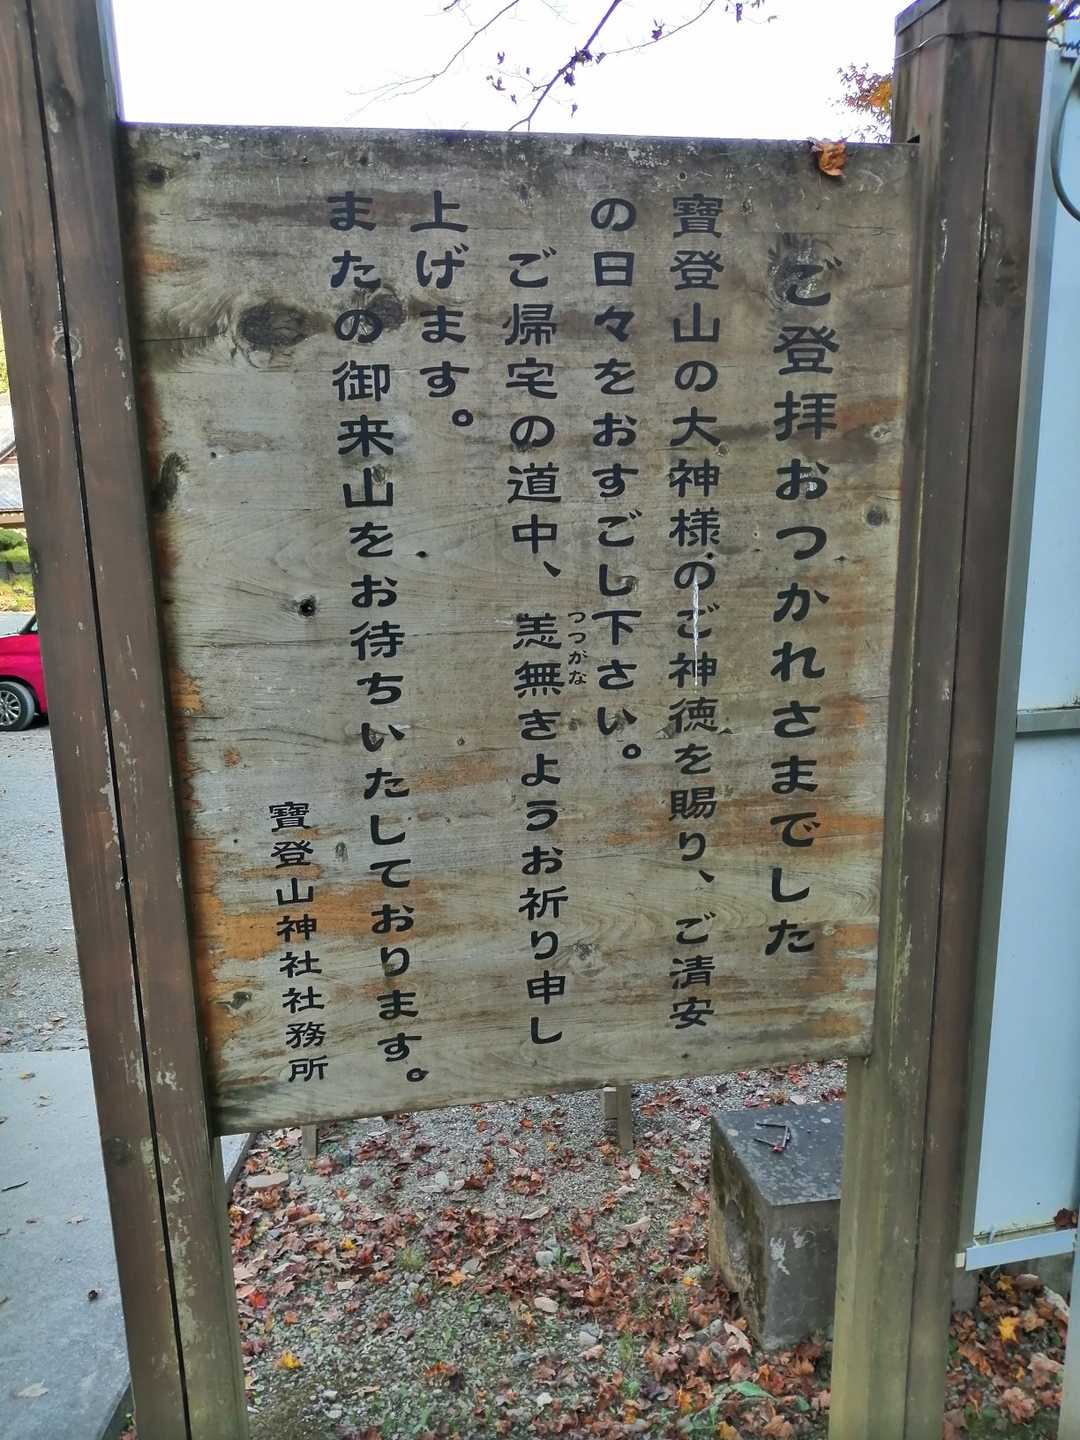 ご登拝おつかれさまでした
寶登山の大神様のご神徳を賜り、ご清安
の日々をおすごし下さい。
ご帰宅の道中、恙無きようお祈り申し
つつがな
上げます。
またの御来山をお待ちいたしております。
寶登山神社社務所